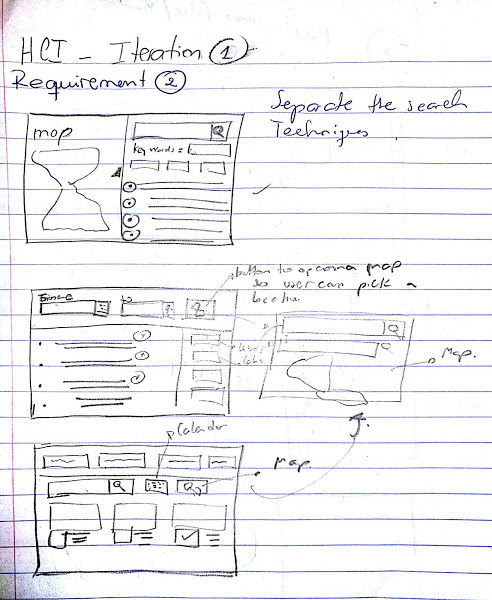 HCI - Iteration 1
Requirement 2
Separate the search
Techniques.
map
Key words =
button to open a map
so user can pick a
location
Since
to
Map.
Calander
Map.